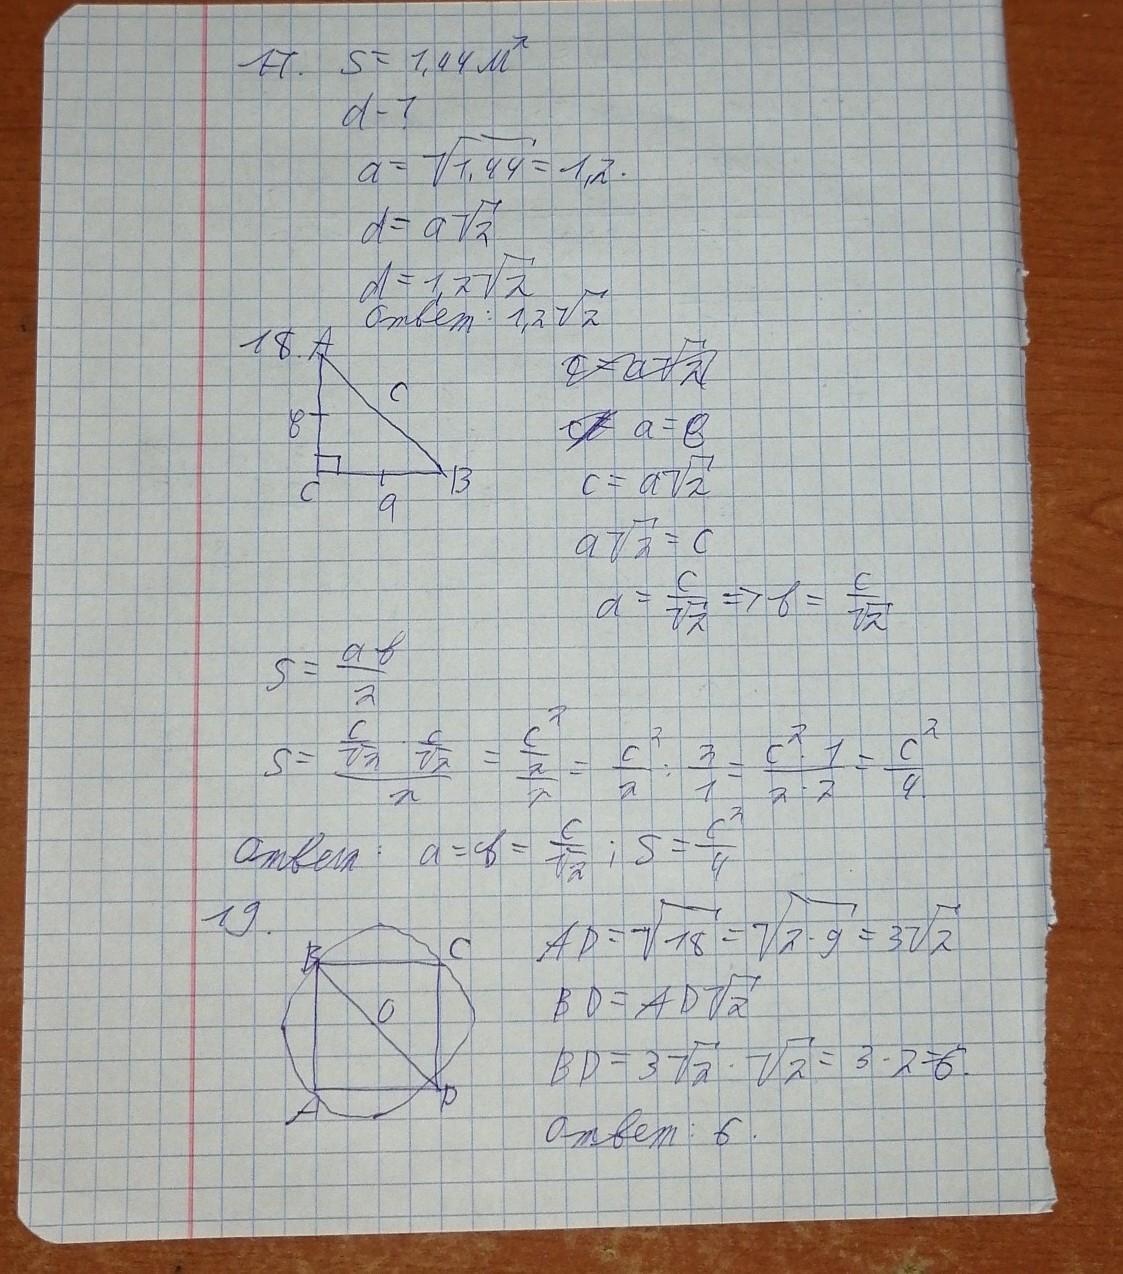 17. S = 1,44 м²
d - ?
a = √1,44 = 1,2.
d = a√2
d = 1,2√2
Ответ: 1,2√2
18. A
c
в
C
a
B
c = a√2
a = в
c = a√2
a√2 = c
a = c/√2 => в = c/√2
S = aв/2
S = (c/√2 · c/√2)/2 = (c²/2)/2 = c²/2 : 2/1 = c²·1/2·2 = c²/4.
Ответ: a = в = c/√2 ; S = c²/4
19.
B
C
O
A
D
AD = √18 = √2·9 = 3√2
BD = AD√2
BD = 3√2 · √2 = 3·2=6.
Ответ: 6.